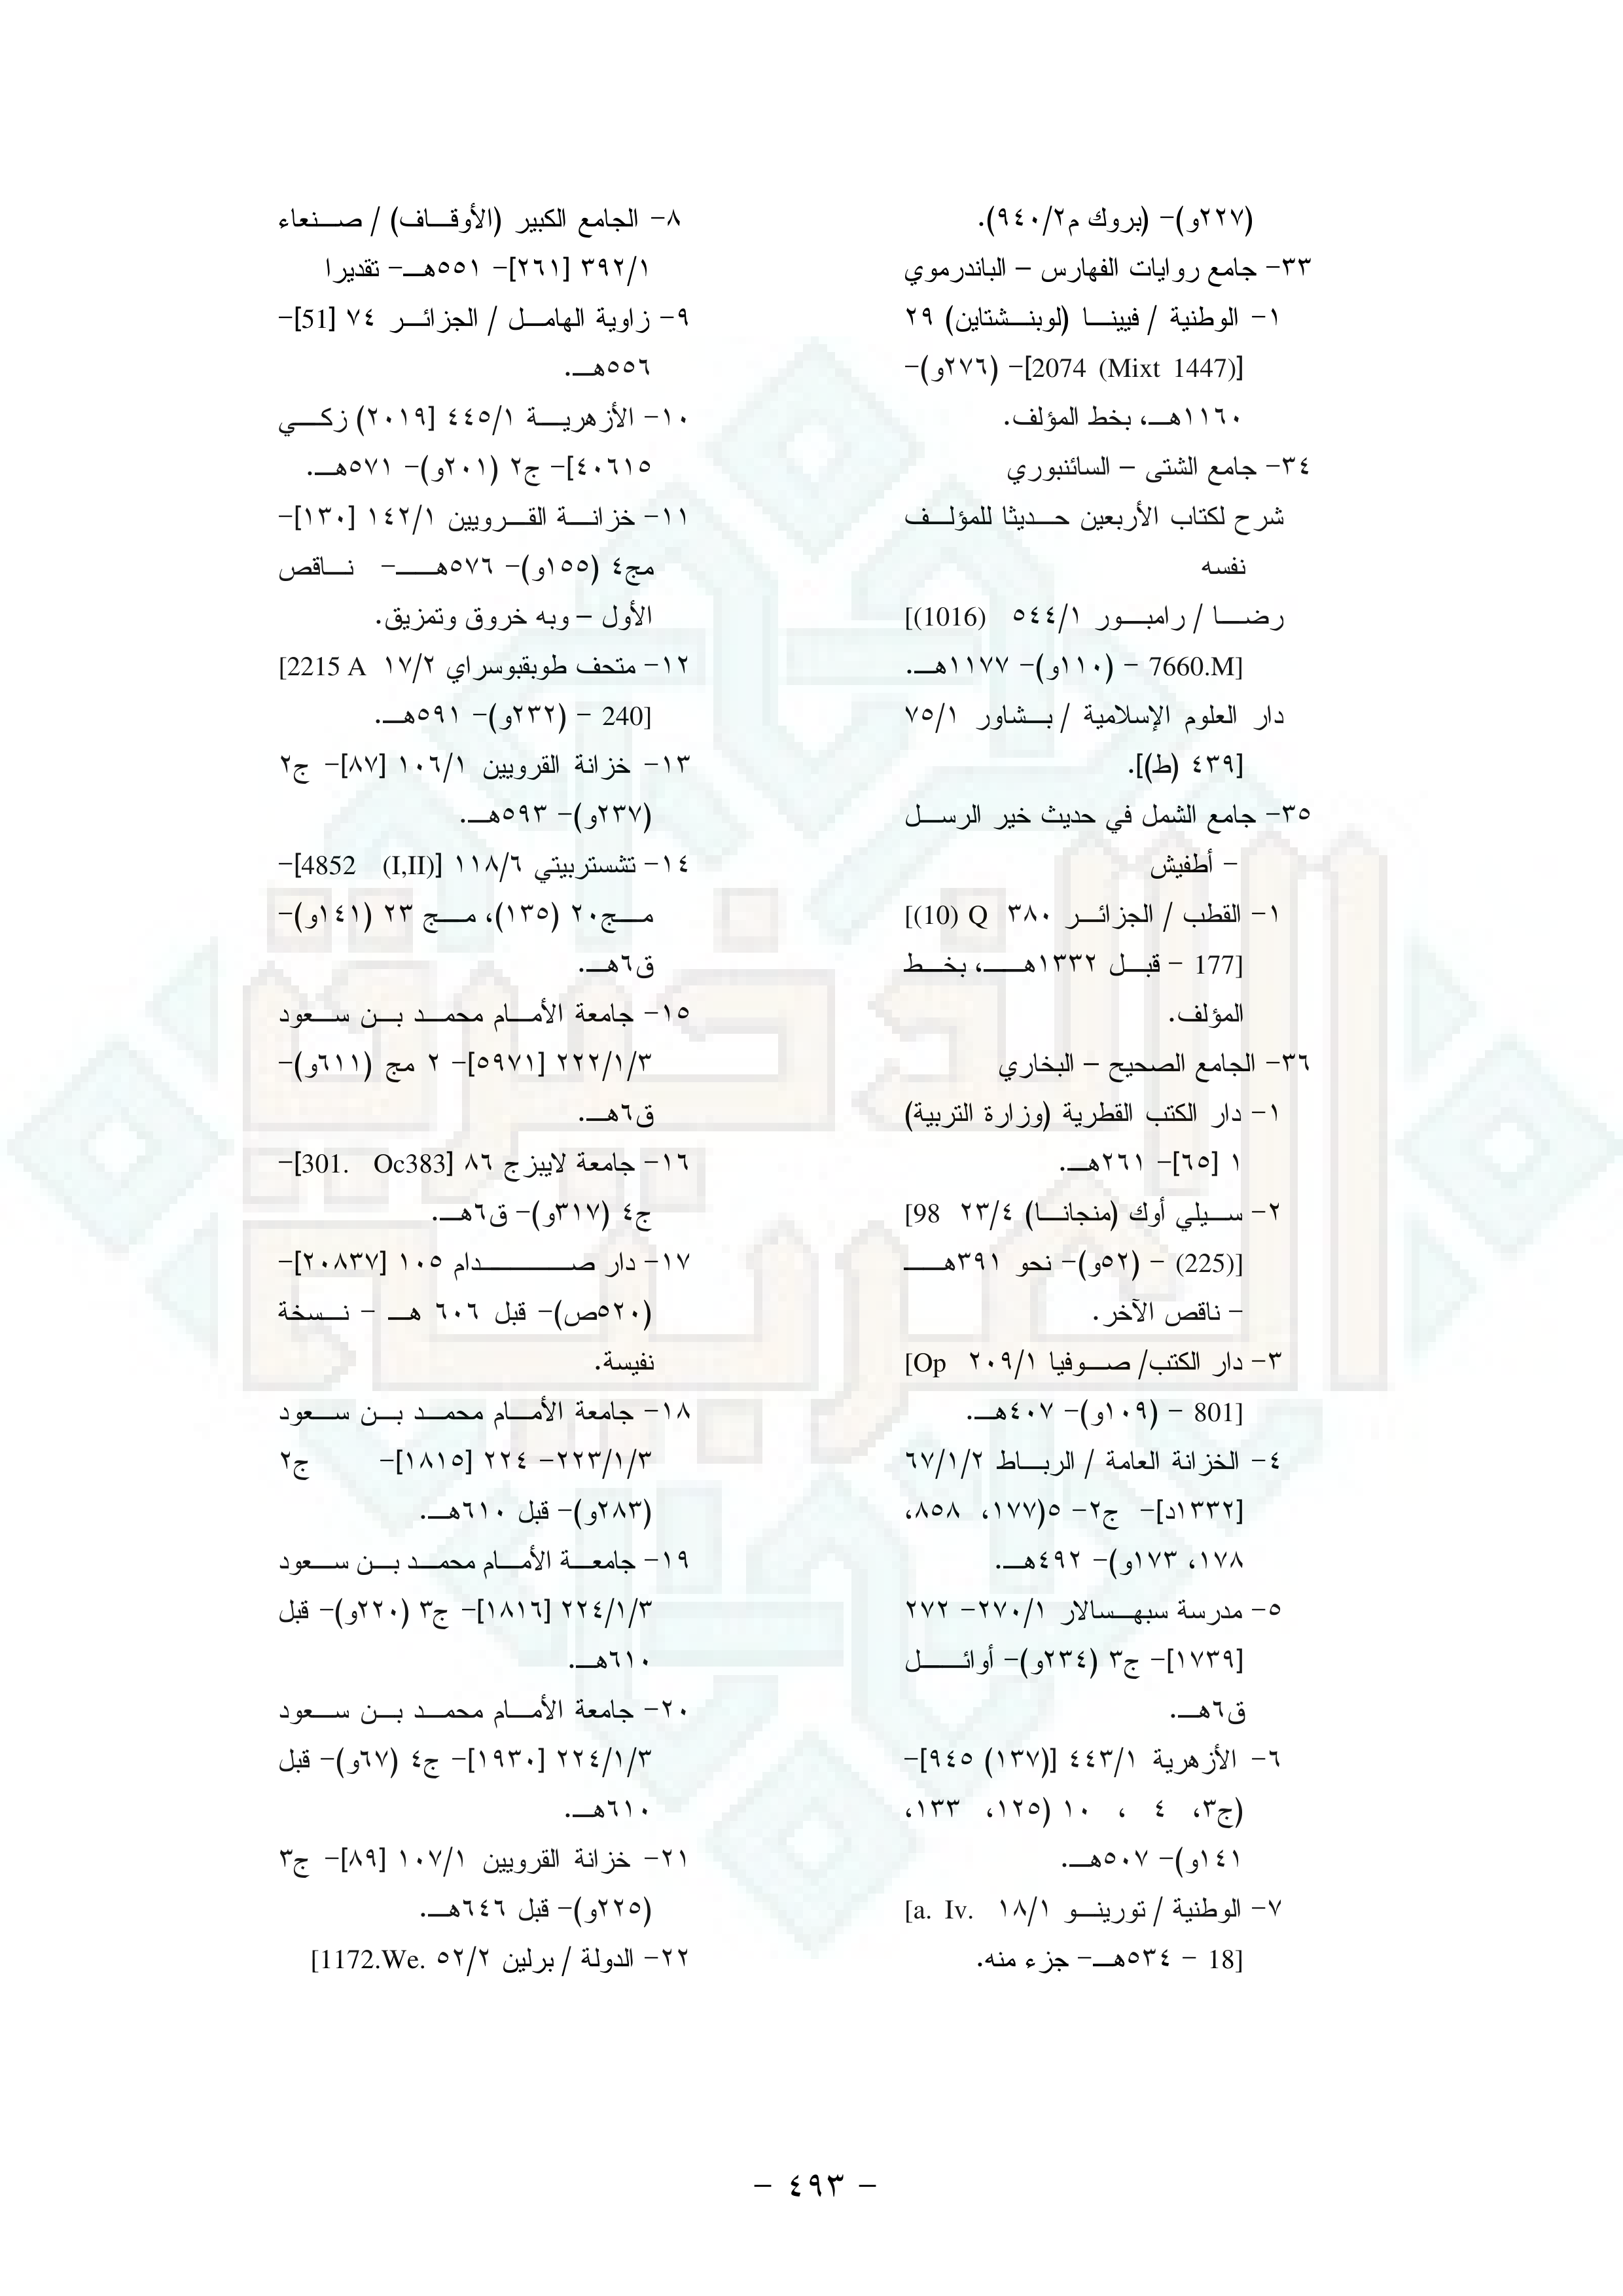 (٢٢٧و)- (بروك م٢/٩٤٠).
٣٣- جامع روايات الفهارس – الباندرموي
١- الوطنية / فيينا (لوبنشتاين) ٢٩
[2074 (Mixt 1447)]- (٢٧٦و)-
١١٦٠هـ، بخط المؤلف.
٣٤- جامع الشتى – السائنبوري
شرح لكتاب الأربعين حديثا للمؤلف
نفسه
رضا / رامبور ١/٥٤٤ [(1016)
7660.M] - (١١٠و)- ١١٧٧هـ.
دار العلوم الإسلامية / بشاور ١/٧٥
[٤٣٩ (ط)].
٣٥- جامع الشمل في حديث خير الرسل
- أطفيش
١- القطب / الجزائر ٣٨٠ [(10) Q
177] - قبل ١٣٣٢هـ، بخط
المؤلف.
٣٦- الجامع الصحيح – البخاري
١- دار الكتب القطرية (وزارة التربية)
١ [٦٥]- ٢٦١هـ.
٢- سيلي أوك (منجانا) ٤/٢٣ [98
(225)] - (٥٢و)- نحو ٣٩١هـ
- ناقص الآخر.
٣- دار الكتب/ صوفيا ١/٢٠٩ [Op
801] - (١٠٩و)- ٤٠٧هـ.
٤- الخزانة العامة / الرباط ٢/١/٦٧
[١٣٣٢د]- ج٢- ٥(١٧٧، ٨٥٨،
١٧٨، ١٧٣و)- ٤٩٢هـ.
٥- مدرسة سبهسالار ١/٢٧٠- ٢٧٢
[١٧٣٩]- ج٣ (٢٣٤و)- أوائل
ق٦هـ.
٦- الأزهرية ١/٤٤٣ [(١٣٧) ٩٤٥]-
(ج٣، ٤ ، ١٠ (١٢٥، ١٣٣،
١٤١و)- ٥٠٧هـ.
٧- الوطنية / تورينو ١/١٨ [a. Iv.
18] - ٥٣٤هـ- جزء منه.
٨- الجامع الكبير (الأوقاف) / صنعاء
١/٣٩٢ [٢٦١]- ٥٥١هـ- تقديرا
٩- زاوية الهامل / الجزائر ٧٤ [51]-
٥٥٦هـ.
١٠- الأزهرية ١/٤٤٥ [٢٠١٩) زكي
٤٠٦١٥]- ج٢ (٢٠١و)- ٥٧١هـ.
١١- خزانة القرويين ١/١٤٢ [١٣٠]-
مج٤ (١٥٥و)- ٥٧٦هـ- ناقص
الأول – وبه خروق وتمزيق.
١٢- متحف طوبقبوسراي ٢/١٧ [2215 A
240] - (٢٣٢و)- ٥٩١هـ.
١٣- خزانة القرويين ١/١٠٦ [٨٧]- ج٢
(٢٣٧و)- ٥٩٣هـ.
١٤- تشستربيتي ٦/١١٨ [4852 (I,II)]-
مج٢٠ (١٣٥)، مج ٢٣ (١٤١و)-
ق٦هـ.
١٥- جامعة الأمام محمد بن سعود
٣/١/٢٢٢ [٥٩٧١]- ٢ مج (٦١١و)-
ق٦هـ.
١٦- جامعة لايبزج ٨٦ [301. Oc383]-
ج٤ (٣١٧و)- ق٦هـ.
١٧- دار صدام ١٠٥ [٢٠٨٣٧]-
(٥٢٠ص)- قبل ٦٠٦ هـ - نسخة
نفيسة.
١٨- جامعة الأمام محمد بن سعود
٣/١/٢٢٣- ٢٢٤ [١٨١٥]- ج٢
(٢٨٣و)- قبل ٦١٠هـ.
١٩- جامعة الأمام محمد بن سعود
٣/١/٢٢٤ [١٨١٦]- ج٣ (٢٢٠و)- قبل
٦١٠هـ.
٢٠- جامعة الأمام محمد بن سعود
٣/١/٢٢٤ [١٩٣٠]- ج٤ (٦٧و)- قبل
٦١٠هـ.
٢١- خزانة القرويين ١/١٠٧ [٨٩]- ج٣
(٢٢٥و)- قبل ٦٤٦هـ.
٢٢- الدولة / برلين ٢/٥٢ [1172.We.
- ٤٩٣ -